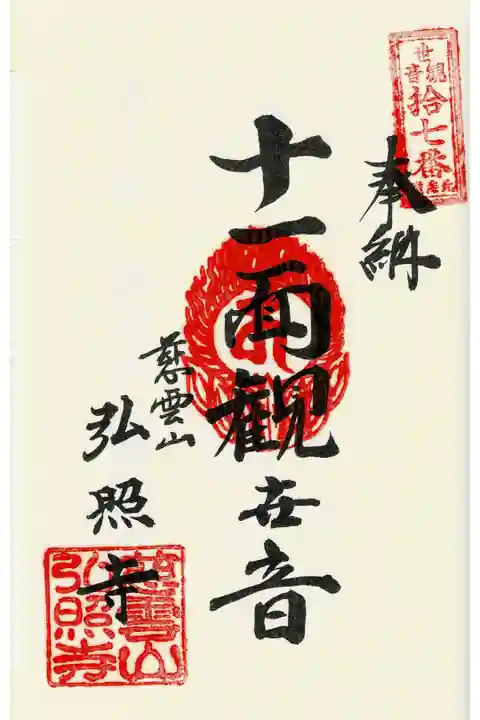 世音
観
拾七番
奉納
十一面観世音
慈雲山
弘照寺
慈雲山
弘照寺